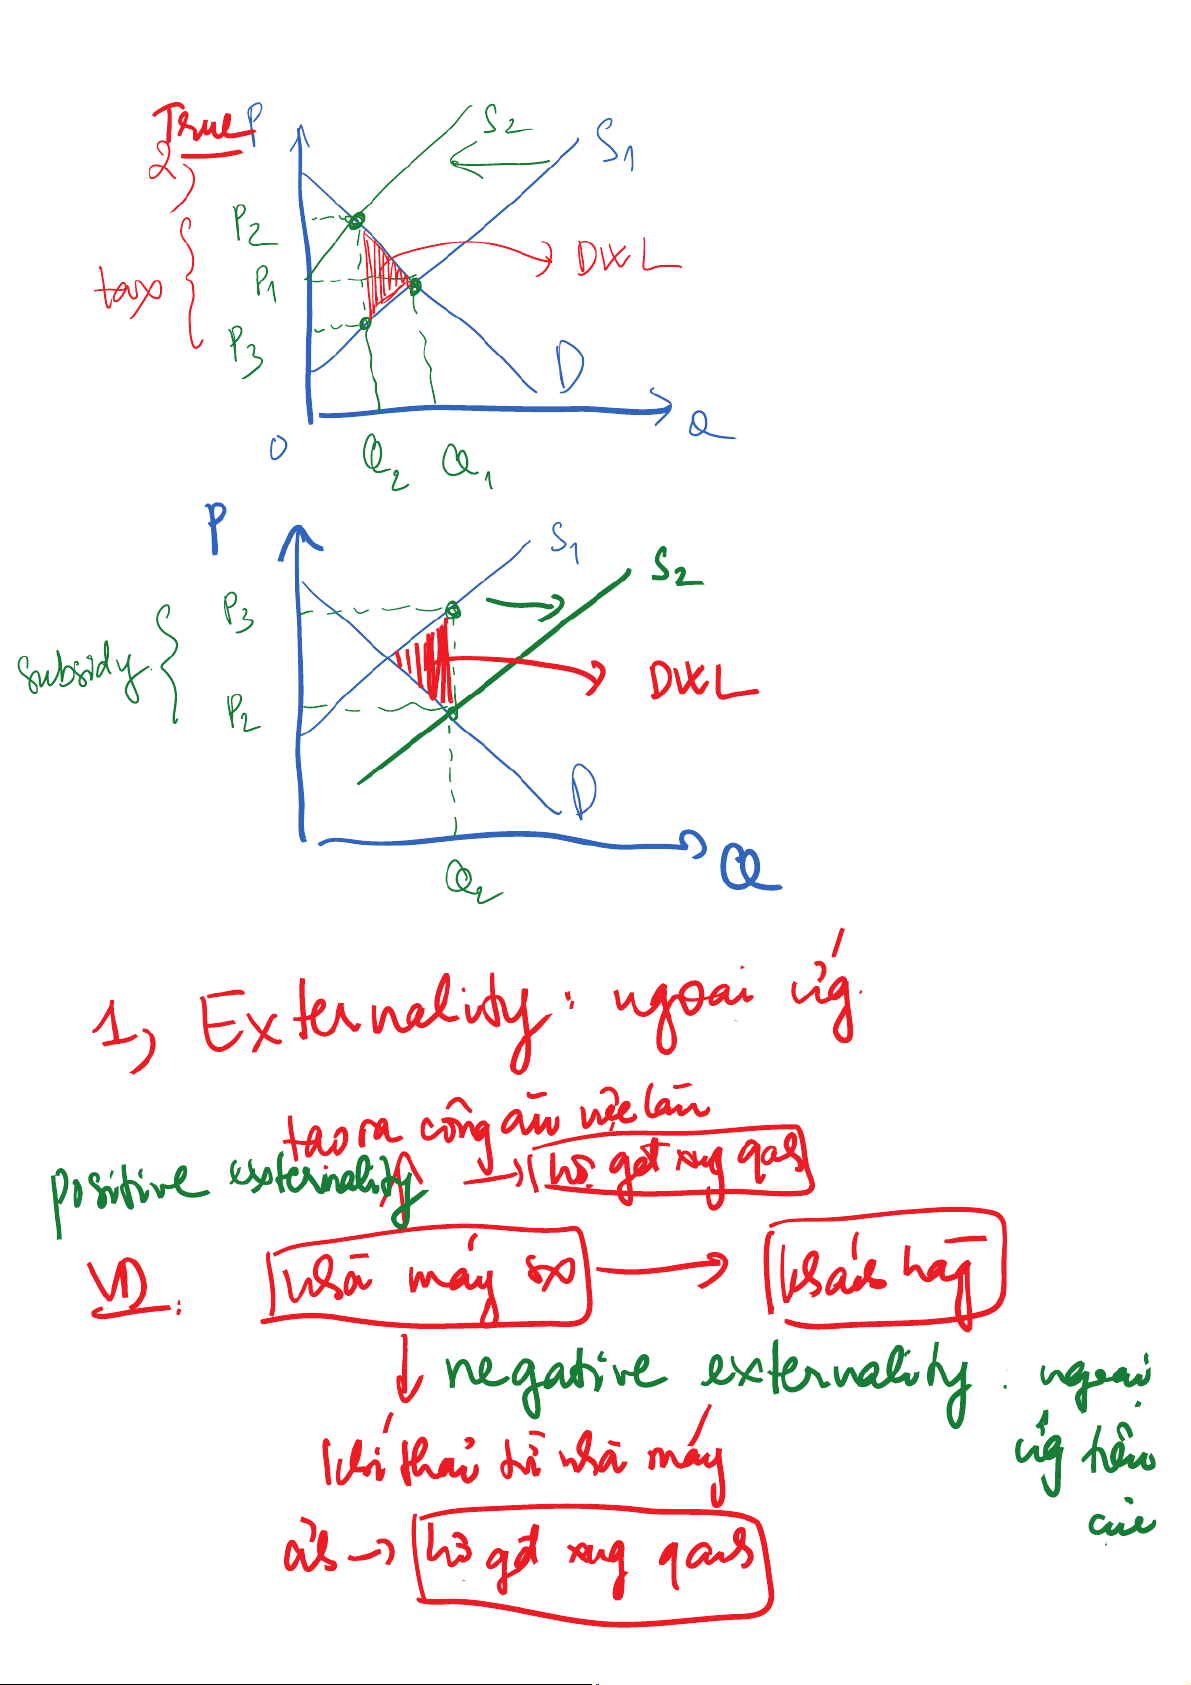 True
2)
P
S2
S1
P2
DWL
P1
tax
P3
D
Q
0
Q2
Q1
P
S1
S2
P3
subsidy
DWL
P2
D
Q2
Q
1, Externality: ngoại ứg.
tạo ra công ăn việc làm
positive externality → hộ gđ xug qah
VD: nhà máy sx → khách hàg
↓ negative externality: ngoại
ứg tiêu
cực
khí thải từ nhà máy
a'h → hộ gđ xug quah